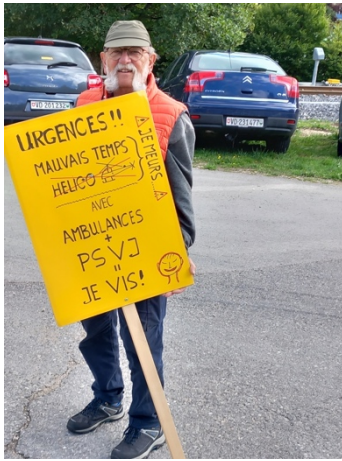 URGENCES!!
MAUVAIS TEMPS
HELICO
JE MEURS
AVEC
AMBULANCES
+
PSVJ
=
JE VIS!
VD 231477